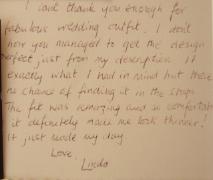 I cant thank you enough for
fabulous wedding outfit. I dont
how you managed to get the design
perfect just from my description. It
exactly what I had in mind but there
no chance of finding it in the shops
The fit was amazing and so comfortable
it definitely made me look thinner!
It just made my day
Love,
Linda